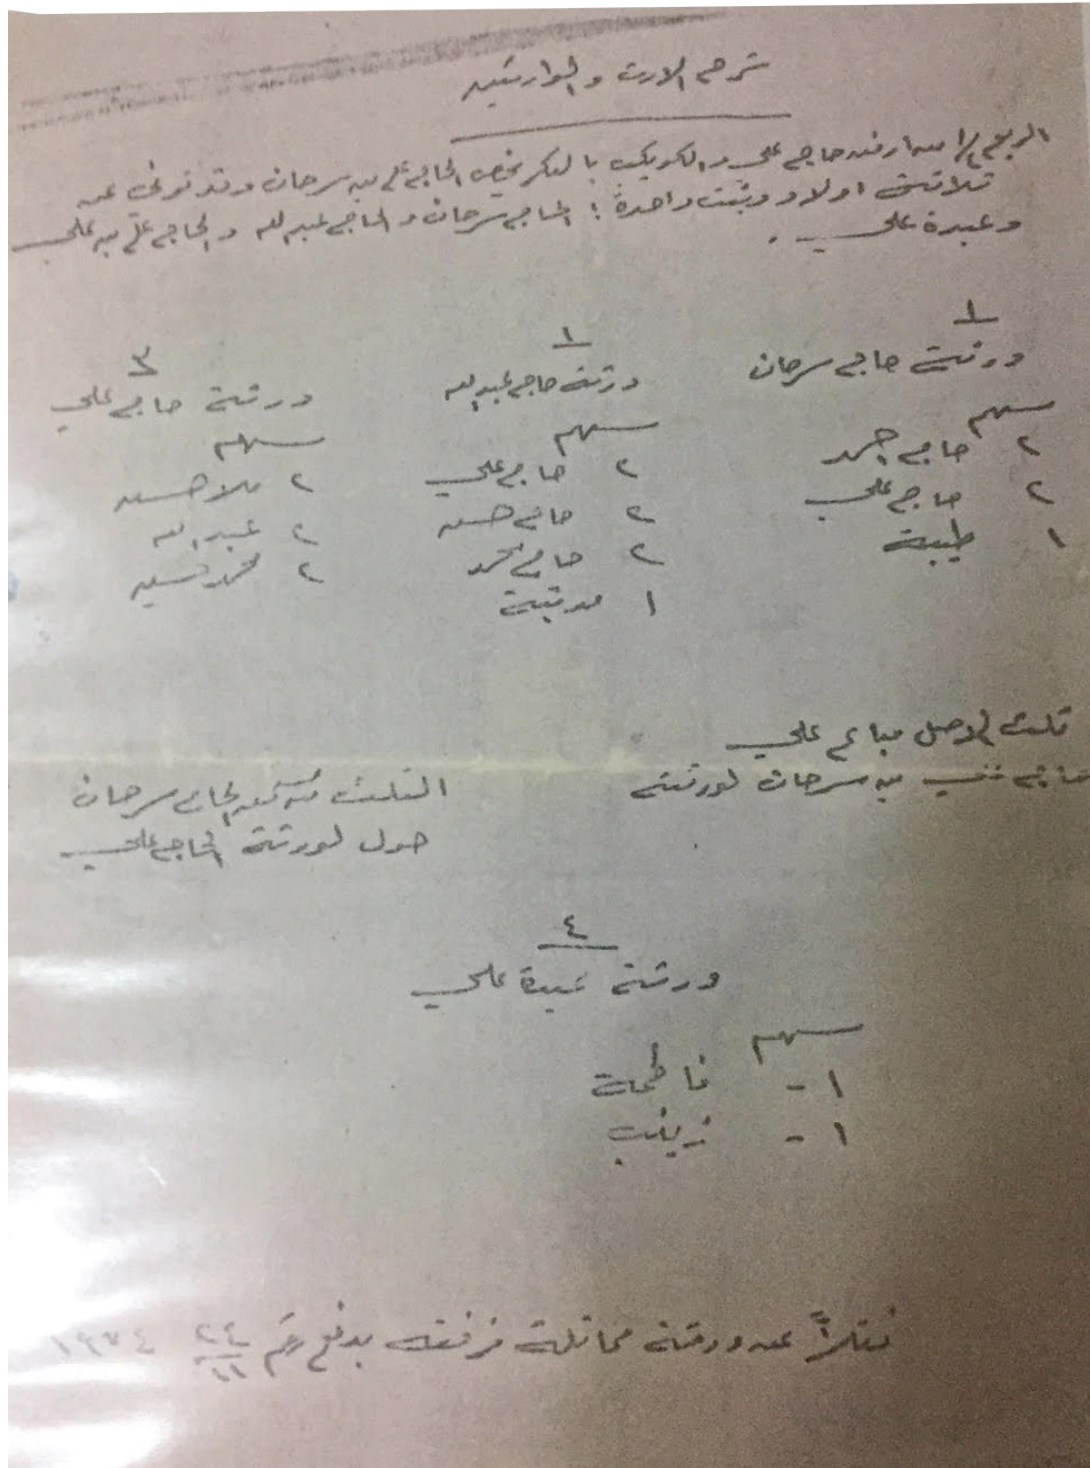 شرح الارث والوارثين
الربع ١/٤ من ارض حاجي علي والكويكب بالسكر يخص الحاج علي بن سرحان وقد توفى عن
ثلاثة اولاد وبنت واحدة : الحاج سرحان والحاج عبدالله والحاج علي بن علي
وعبدة علي .
١
ورثة حاجي سرحان
سهم
٢ حاجي احمد
٢ حاجي علي
١ طيبة
١
ورثة حاجي عبدالله
سهم
٢ حاجي علي
٢ حاجي حسن
٢ حاجي محمد
١ مدينة
٣
ورثة حاجي علي
سهم
٢ ملا حسن
٢ عبدالله
٢ محمد حسين
ثلث الاصل مباع علي
حاجي بن سرحان لورثته
الثلث من الحاج سرحان
حول لورثة الحاج علي
٤
ورثة عبدة علي
سهم
١ - فاطمة
١ - زينب
نقلاً عن ورقة مماثلة مرفقه بدفع رقم ٢٤/١١ ١٩٧٤